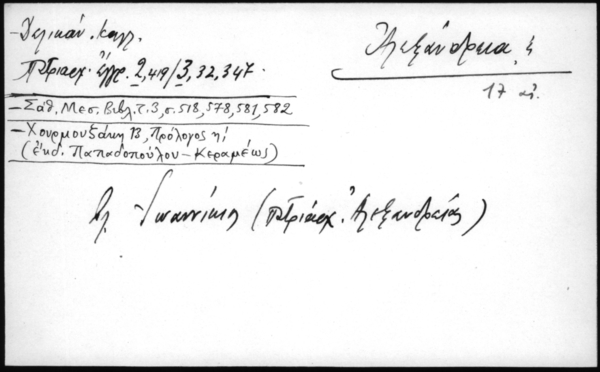 – Δελικάν. Καλλ.
Πατριαρχ. Ἔγγρ. 2, 419/3, 32, 347.
– Σάθ. Μεσ. Βιβλ. τ. 3, σ. 518, 578, 581, 582
– Χουρμουζάκη 13, Πρόλογος η΄
(ἐκδ. Παπαδοπούλου – Κεραμέως)
Ἀλεξάνδρεια
17 αἰ.
βλ. Ἰωαννίκιος (Πατριάρχ. Ἀλεξανδρείας)